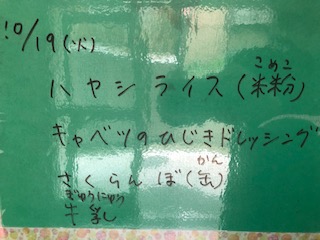 10/19(火)
ハヤシライス(米粉)
こめこ
キャベツのひじきドレッシング
さくらんぼ(缶)
かん
牛乳
ぎゅうにゅう